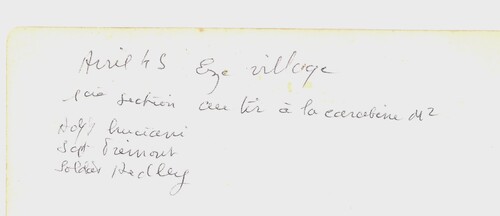 Avril 45 Eze village
1ère section au tir à la carabine M2
Adjt Luciani
Sgt Trémont
Soldat Hedley